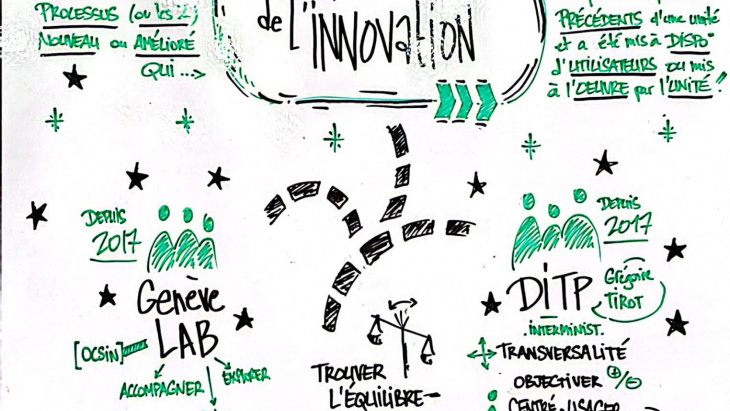 PROCESSUS (ou les 2)
NOUVEAU ou AMÉLIORÉ
QUI ...>
de L'INNOVATION
PRÉCÉDENTS d'une unité
et a été mis à DISPO°
d'UTILISATEURS ou mis
à l'OEUVRE par l'UNITÉ!
DEPUIS
2017
Genève
LAB
[OCSIN]
ACCOMPAGNER
EXPLORER
TROUVER
L'ÉQUILIBRE
DEPUIS
2017
DITP
Grégoire
TIROT
.INTERMINIST.
TRANSVERSALITÉ
OBJECTIVER +/-
CENTRÉ-USAGER